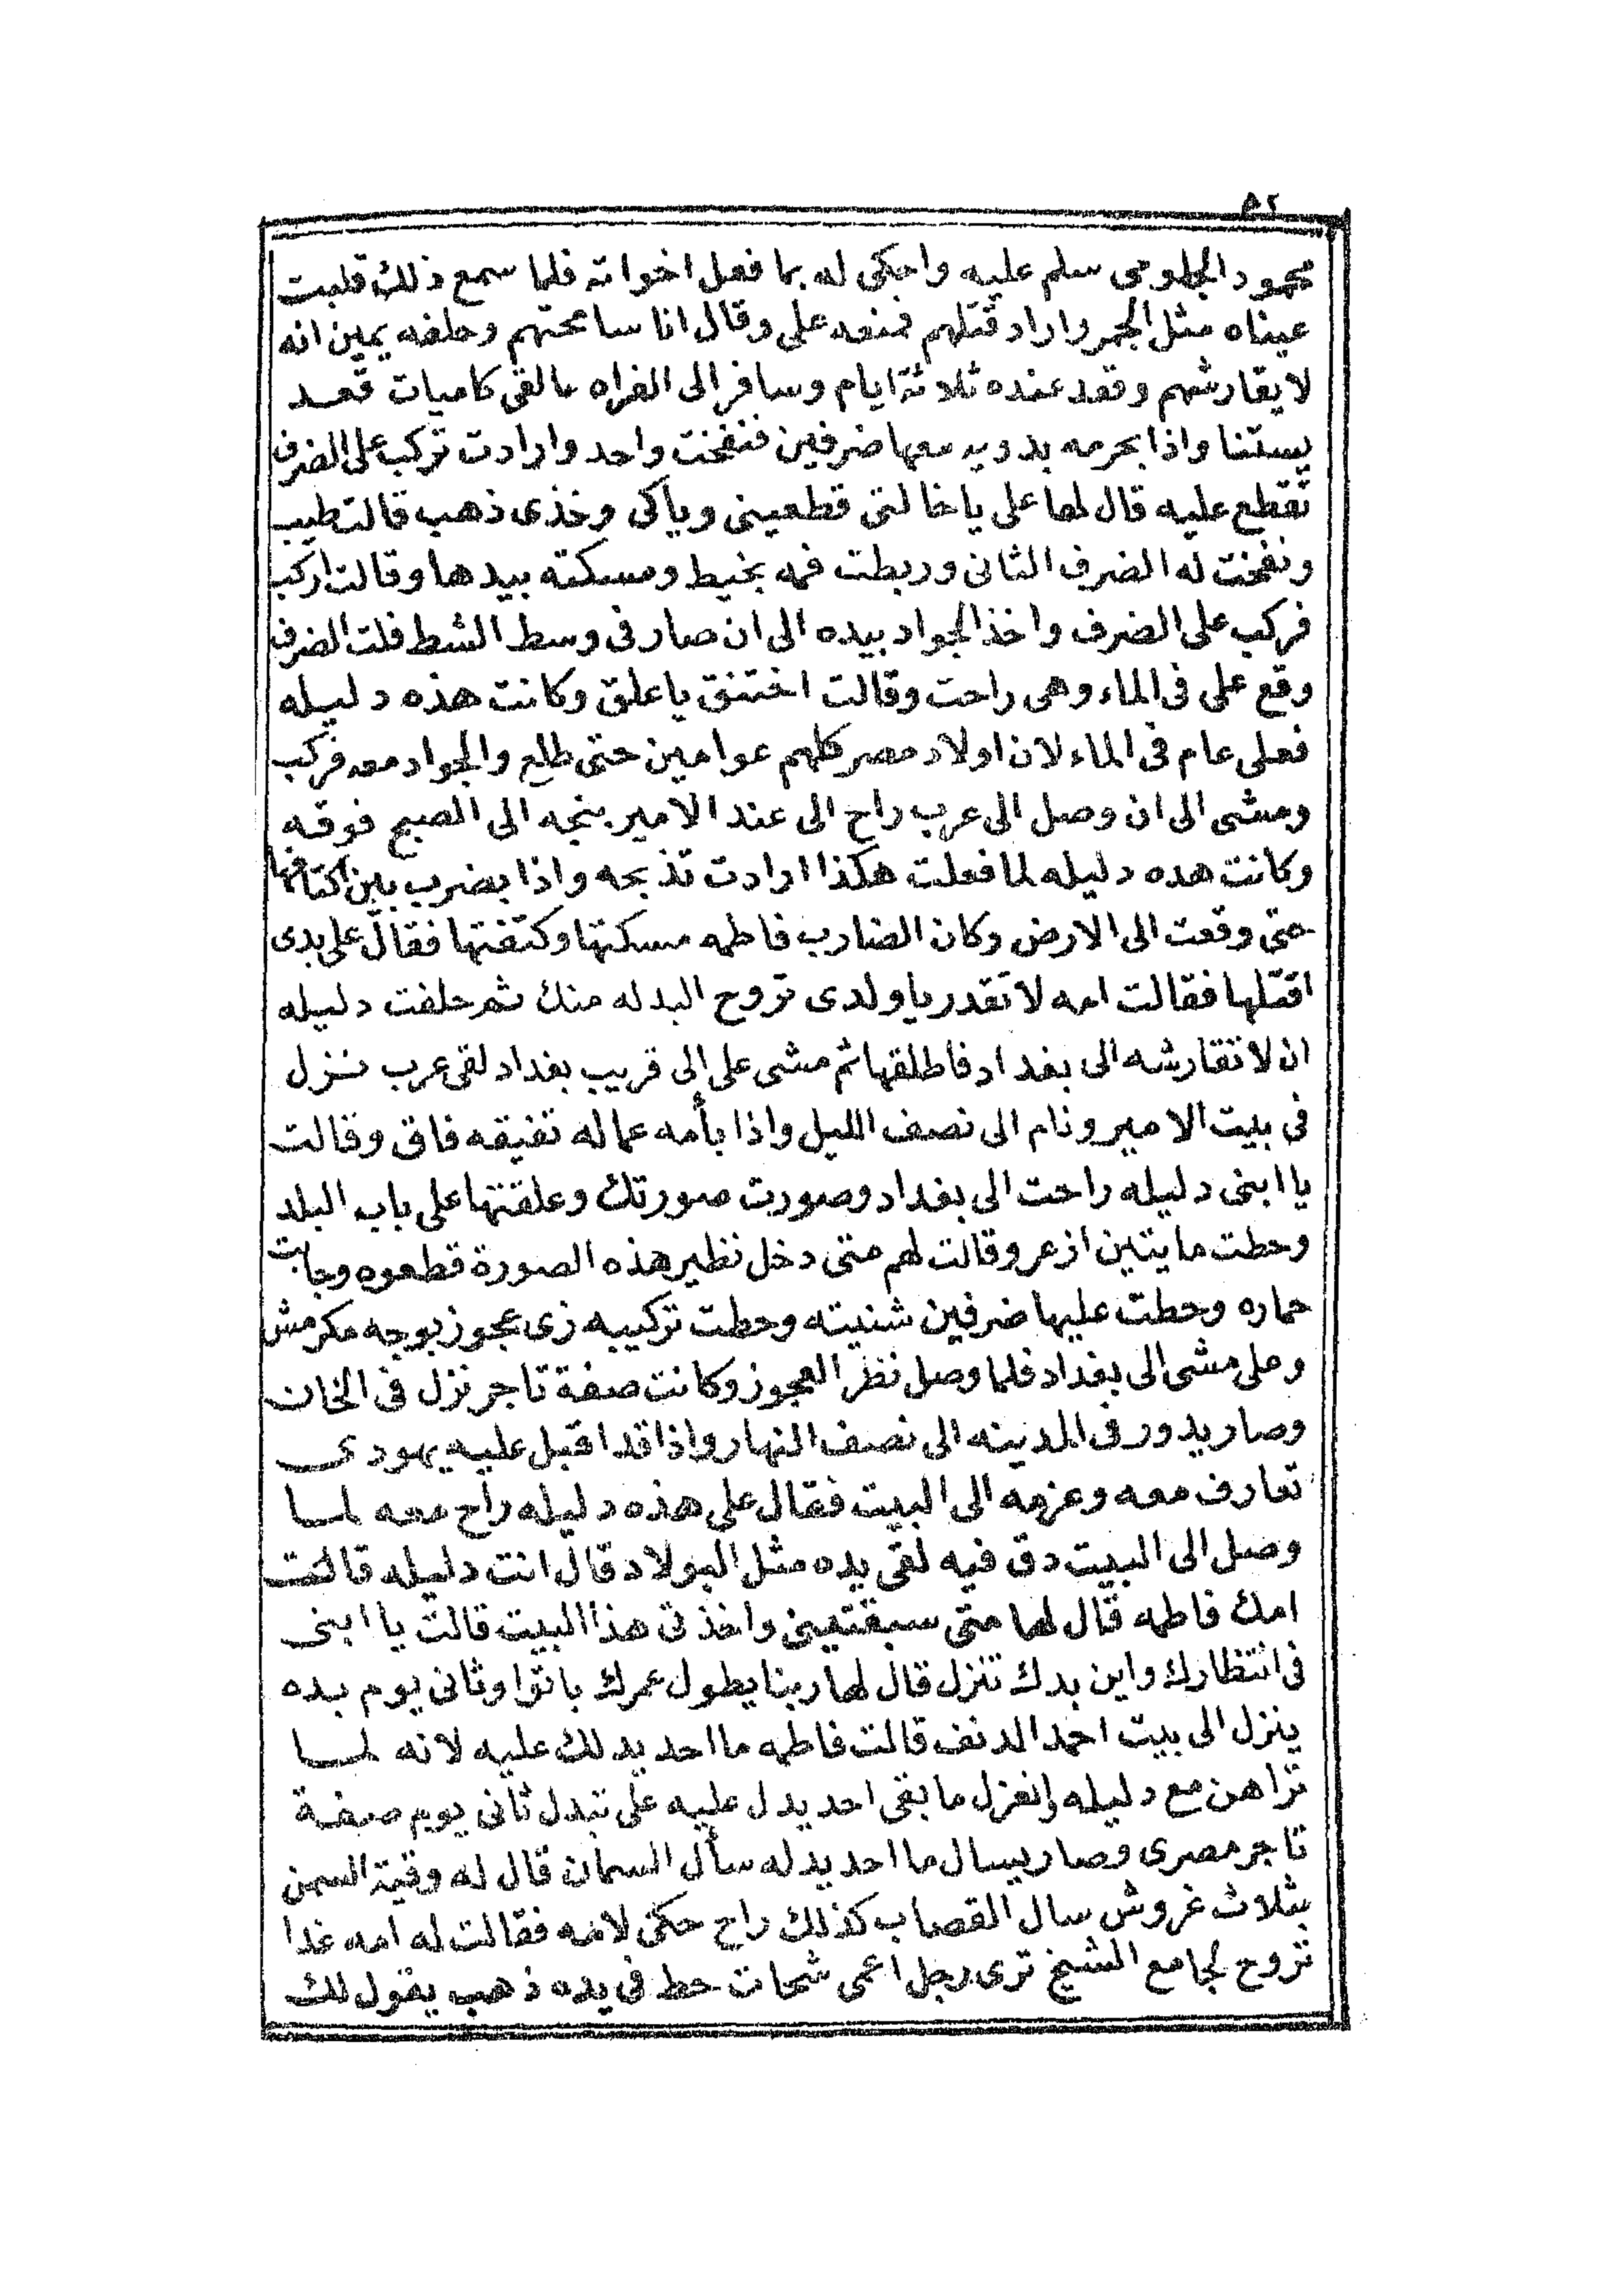 ٥٢
محمود الجلوجى سلم عليه واحكى له بما فعل اخواته فلما سمع ذلك قلبت
عيناه مثل الجمر واراد قتلهم فمنعه على وقال انا سامحتهم وحلفه يمين انه
لا يقارشهم وقعد عنده ثلاثة ايام وسافر الى الفراه مالقى كاميات قعد
يستنا واذا بحرمه بدويه معها ضرفين فنفخت واحد وارادت تركب على الضرف
تقطع عليه قال لها على يا خالتى قطعينى وياكى وخذى ذهب قالت طيب
ونفخت له الضرف الثانى وربطت فمه بخيط ومسكته بيدها وقالت اركب
فركب على الضرف واخذ الجواد بيده الى ان صار فى وسط الشط فلت الضرف
وقع على فى الماء وهى راحت وقالت اختنق يا علق وكانت هذه دليله
فعلى عام فى الماء لان اولاد مصر كلهم عوامين حتى طلع والجواد معه فركب
ومشى الى ان وصل الى عرب راح الى عند الامير بنجه الى الصبح فوقه
وكانت هده دليله لما فعلت هكذا ارادت تذبحه واذا بضرب بين اكتافها
حتى وقعت الى الارض وكان الضارب فاطمه مسكتها وكتفتها فقال على بدى
اقتلها فقالت امه لا تقدر يا ولدى تروح البدله منك ثم حلفت دليله
ان لا تقارشه الى بغداد فاطلقها ثم مشى على الى قريب بغداد لقى عرب نزل
فى بيت الامير ونام الى نصف الليل واذا بأمه عماله تفيقه فاق وقالت
يا ابنى دليله راحت الى بغداد وصورت صورتك وعلقتها على باب البلد
وحطت مايتين ازعر وقالت لهم متى دخل نظير هذه الصورة قطعوه وجابت
حماره وحطت عليها ضرفين شنيته وحطت تركيبه زى عجوز بوجه مكرمش
وعلى مشى الى بغداد فلما وصل نظر العجوز وكانت صفة تاجر نزل فى الخان
وصار يدور فى المدينه الى نصف النهار واذا قد اقبل عليه يهودى
تعارف معه وعزمه الى البيت فقال على هذه دليله راح معه لما
وصل الى البيت دق فيه لقى يده مثل البولاد قال انت دليله قالت
امك فاطمه قال لها متى سبقتينى واخذتى هذا البيت قالت يا ابنى
فى انتظارك واين بدك تنزل قال لها ربنا يطول عمرك باتوا وثانى يوم بده
ينزل الى بيت احمد الدنف قالت فاطمه ما احد يدلك عليه لانه لما
تراهن مع دليله وانعزل ما بقى احد يدل عليه على تبدل ثانى يوم صفة
تاجر مصرى وصار يسال ما احد يدله سأل السمان قال له وقية السمن
بثلاث غروش سال القصاب كذلك راح حكى لامه فقالت له امه غدا
تروح لجامع الشيخ ترى رجل اعمى شحات حط فى يده ذهب يقول لك